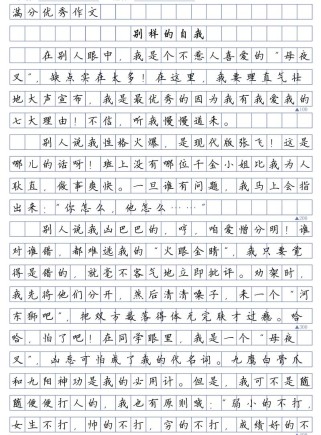 满分优秀作文
别样的自我
在别人眼中，我是个不惹人喜爱的“母夜
叉”，缺点实在太多！在这里，我要理直气壮
地大声宣布，我是最优秀的因为我有我爱我的
七大理由！不信，听我慢慢道来。
别人说我性格火爆，是现代版张飞！这是
哪儿的话呀！班上没有哪位千金小姐比我为人
耿直，做事爽快。一旦谁有问题，我马上会指
出来：“你怎么，他怎么……”
别人说我凶巴巴的，哼，咱爱憎分明！谁
对谁错，都难逃我的“火眼金睛”，我只要觉
得是错的，就毫不客气地立即批评。劝架时，
我先将他们分开，然后清清嗓子，来一个“河
东狮吼”，把双方数落得体无完肤才过瘾。哈
哈，怕了吧！在同学眼里，我是一个“母夜
叉”，凶恶可怕成了我的代名词。九鹰白骨爪
和九阳神功是我的必用计。但是，我可不是随
随便便打人的，我也有原则哦：“弱小的不打，
女生不打，帅的不打，穷的不打，成绩好的不